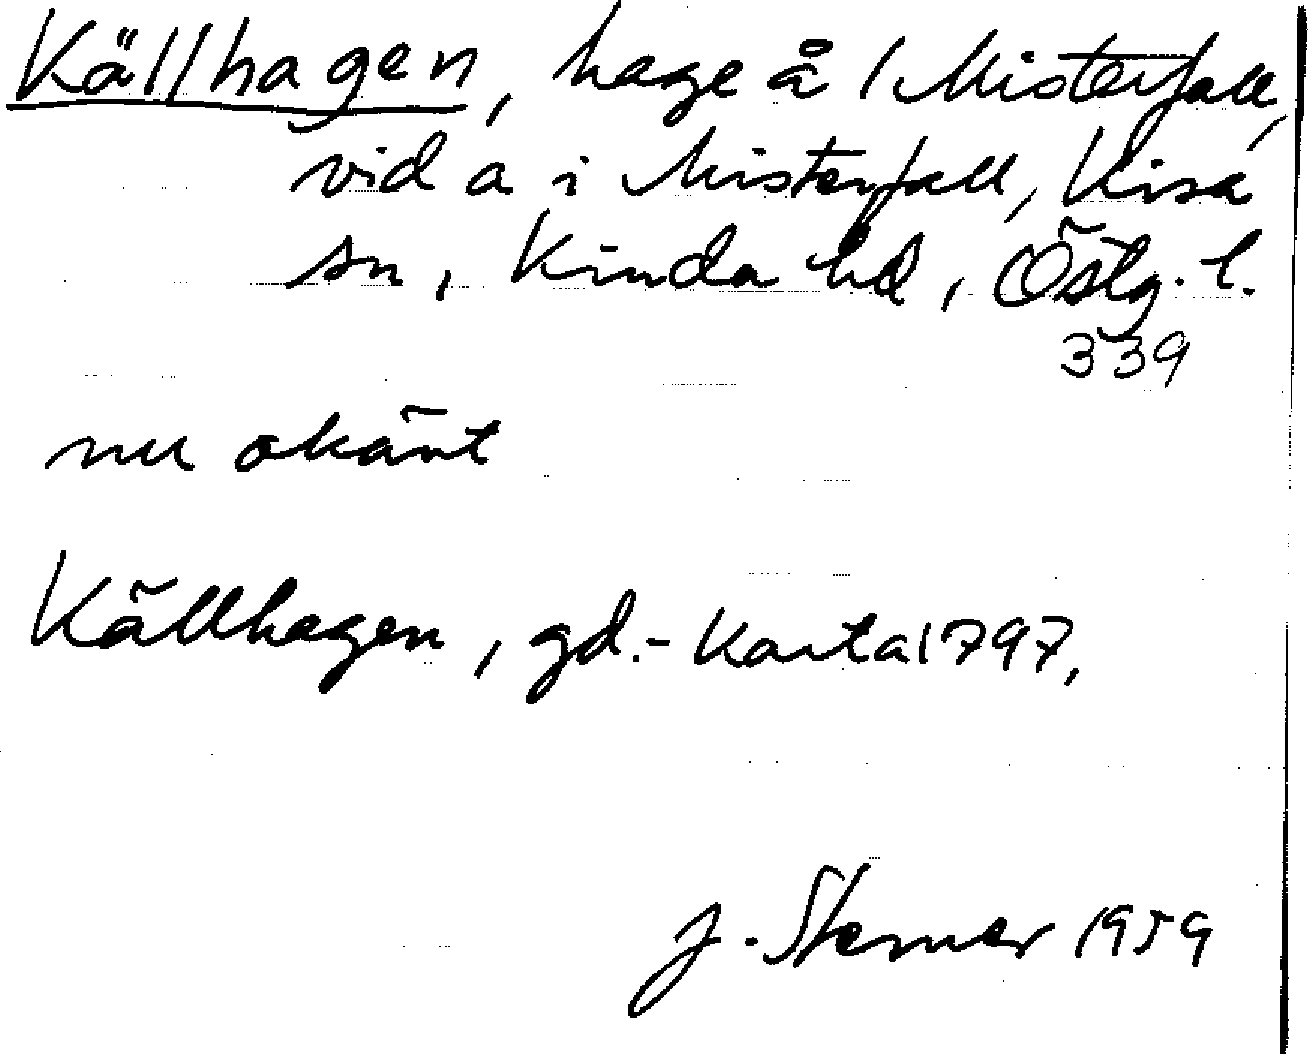 Källhagen, hage å / Misterfall,
vid a i Misterfall, Kisa
sn, Kinda hd, Östg. l.
339
nu okänt
Källhagen, gd.- karta 1797,
J. Sterner 1959